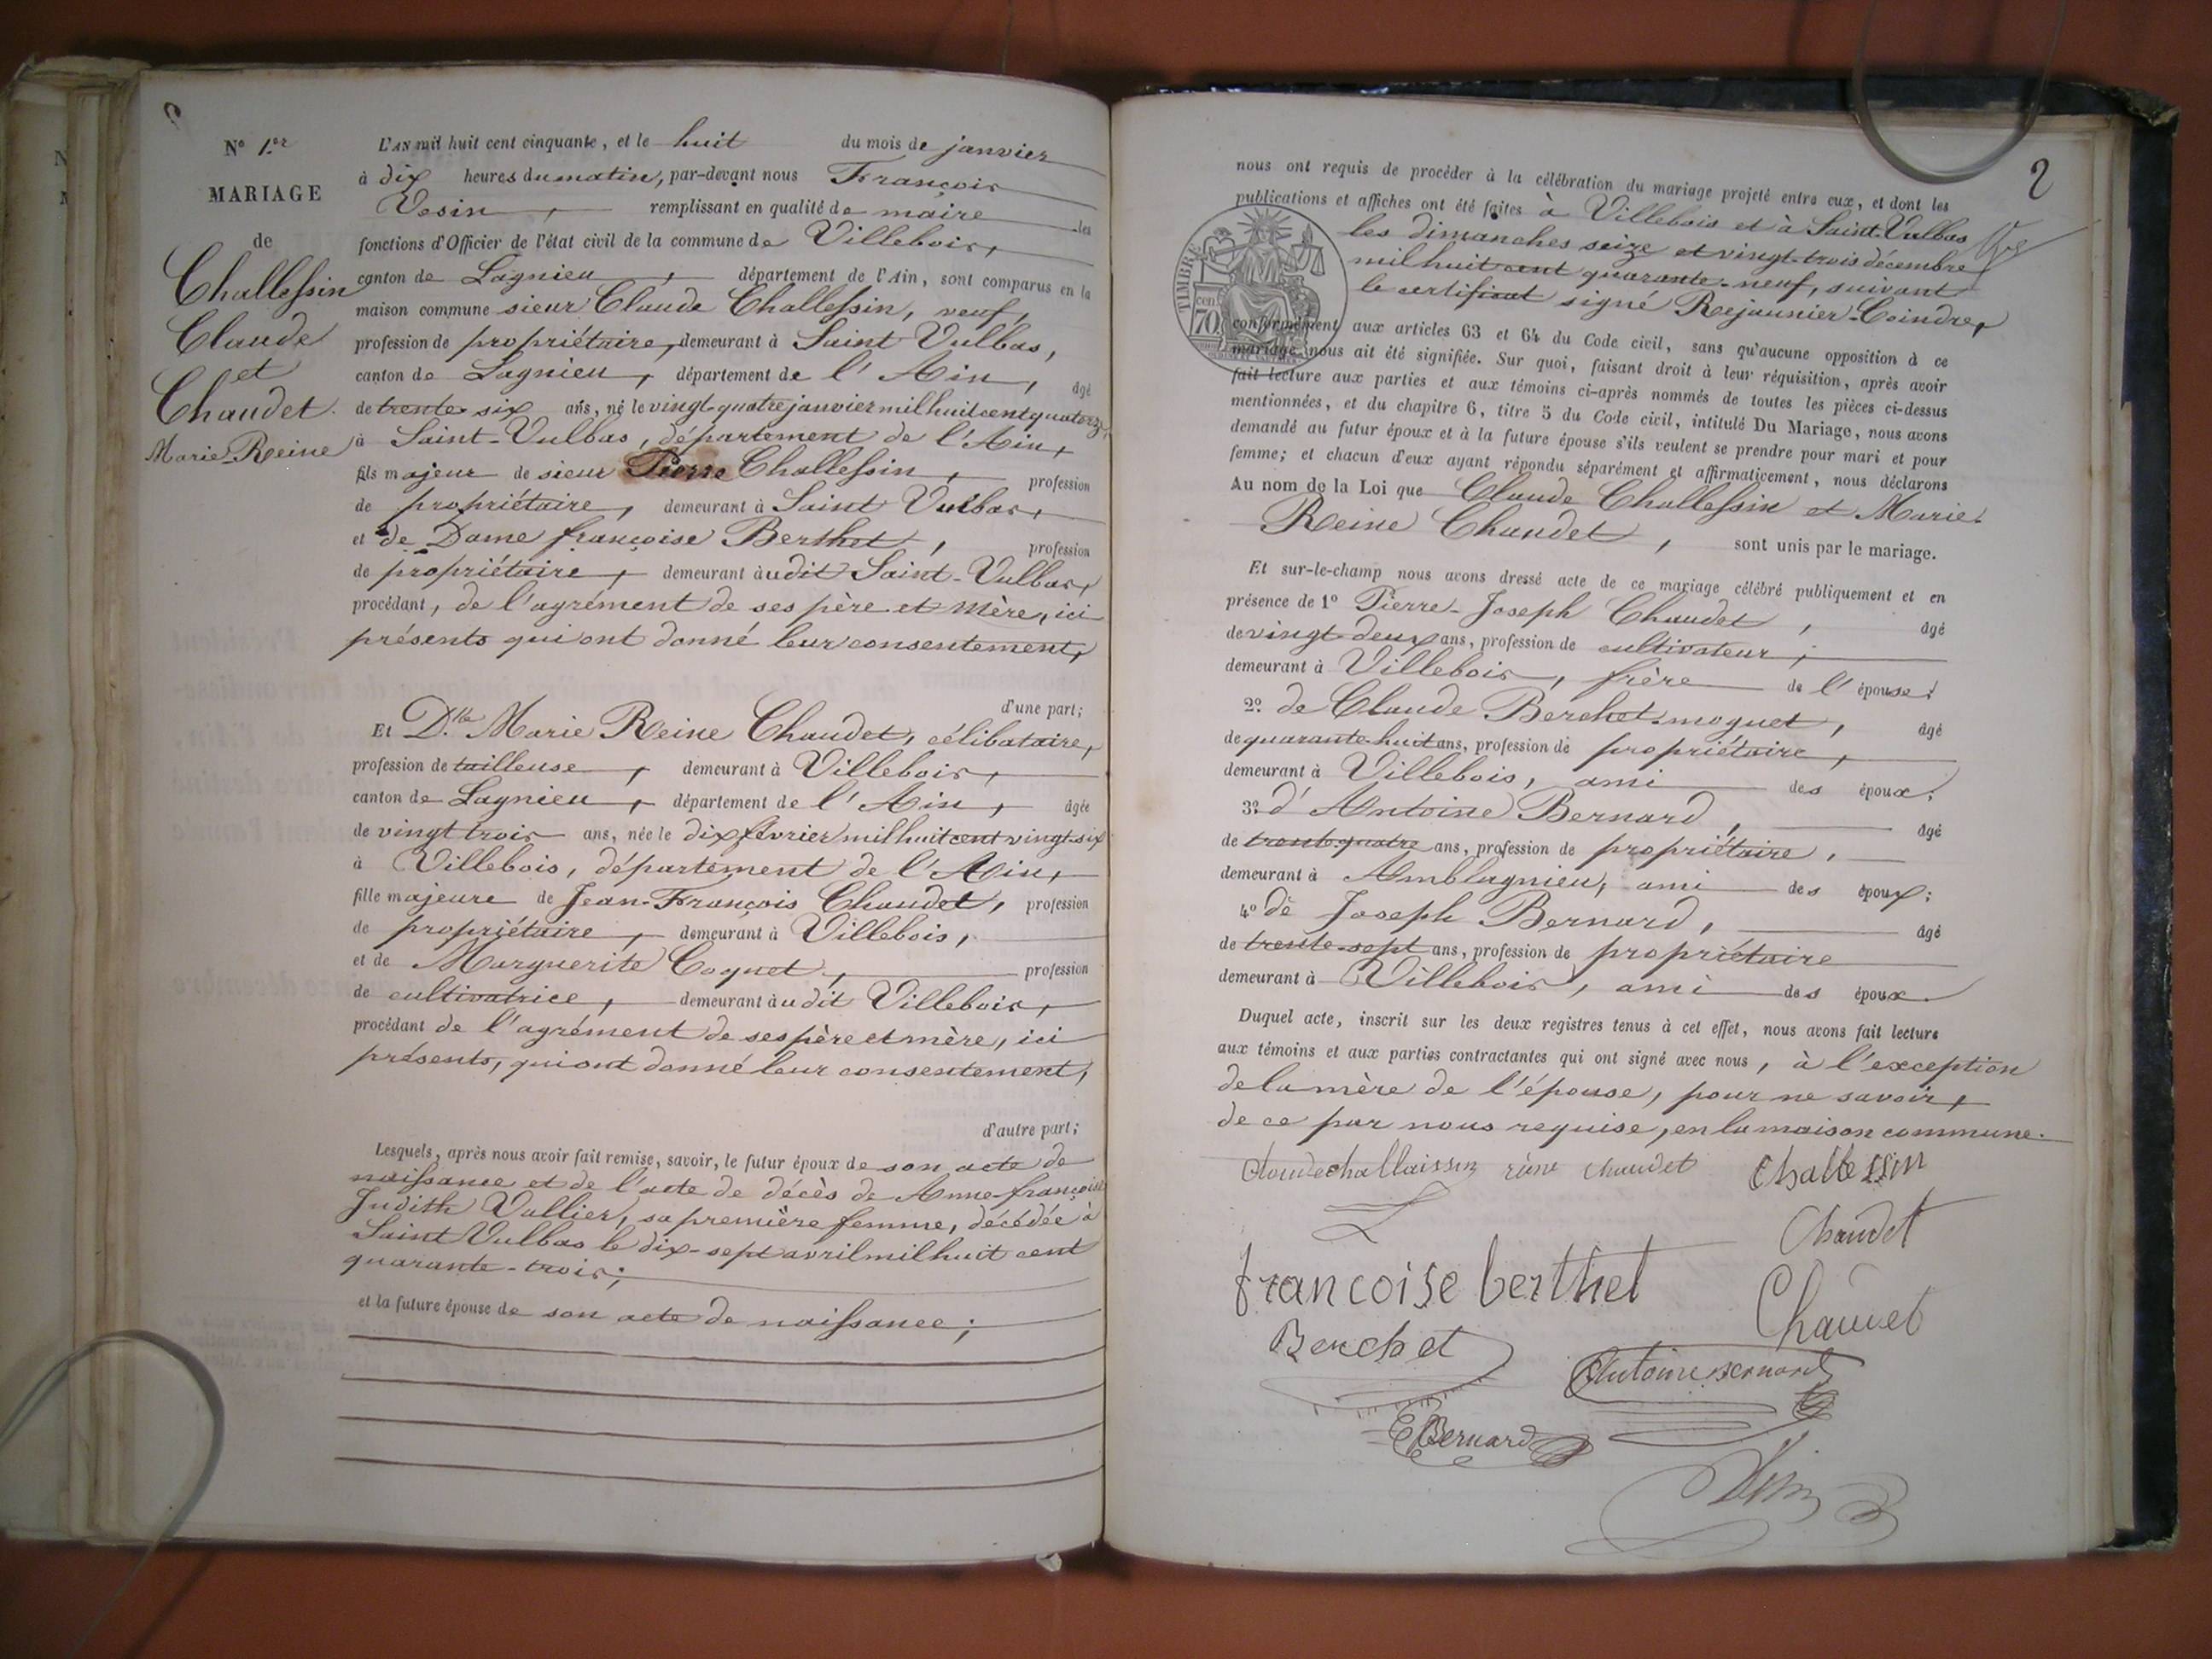 N° 1.er
MARIAGE
de
Challessin
Claude
et
Chaudet
Marie-Reine
L'AN mil huit cent cinquante, et le huit du mois de janvier
à dix heures du matin, par-devant nous François
Vesin, remplissant en qualité de maire les
fonctions d'Officier de l'état civil de la commune de Villebois,
canton de Lagnieu, département de l'Ain, sont comparus en la
maison commune sieur Claude Challessin, veuf,
profession de propriétaire, demeurant à Saint Vulbas,
canton de Lagnieu, département de l'Ain, âgé
de trente six ans, né le vingt-quatre janvier mil huit cent quatorze,
à Saint-Vulbas, département de l'Ain,
fils majeur de sieur Pierre Challessin, profession
de propriétaire, demeurant à Saint Vulbas,
et de Dame françoise Berthet, profession
de propriétaire, demeurant audit Saint-Vulbas,
procédant, de l'agrément de ses père et mère, ici
présents qui ont donné leur consentement,
d'une part;
Et D.lle Marie Reine Chaudet, célibataire,
profession de tailleuse, demeurant à Villebois,
canton de Lagnieu, département de l'Ain, âgée
de vingt trois ans, née le dix février mil huit cent vingt-six
à Villebois, département de l'Ain,
fille majeure de Jean-François Chaudet, profession
de propriétaire, demeurant à Villebois,
et de Marguerite Coquet, profession
de cultivatrice, demeurant audit Villebois,
procédant de l'agrément de ses père et mère, ici
présents, qui ont donné leur consentement,
d'autre part;
Lesquels, après nous avoir fait remise, savoir, le futur époux de son acte de
naissance et de l'acte de décès de Anne-françoise
Judith Vallier, sa première femme, décédée à
Saint Vulbas le dix-sept avril mil huit cent
quarante-trois;
et la future épouse de son acte de naissance;
2
nous ont requis de procéder à la célébration du mariage projeté entre eux, et dont les
publications et affiches ont été faites à Villebois et à Saint-Vulbas
les dimanches seize et vingt-trois décembre
mil huit cent quarante-neuf, suivant
le certificat signé Rejaunier-Coindre,
TIMBRE
cen
70
conformément aux articles 63 et 64 du Code civil, sans qu'aucune opposition à ce
mariage nous ait été signifiée. Sur quoi, faisant droit à leur réquisition, après avoir
fait lecture aux parties et aux témoins ci-après nommés de toutes les pièces ci-dessus
mentionnées, et du chapitre 6, titre 5 du Code civil, intitulé Du Mariage, nous avons
demandé au futur époux et à la future épouse s'ils veulent se prendre pour mari et pour
femme; et chacun d'eux ayant répondu séparément et affirmativement, nous déclarons
Au nom de la Loi que Claude Challessin et Marie-
Reine Chaudet, sont unis par le mariage.
Et sur-le-champ nous avons dressé acte de ce mariage célébré publiquement et en
présence de 1° Pierre-Joseph Chaudet, âgé
de vingt-deux ans, profession de cultivateur,
demeurant à Villebois, frère de l'épouse;
2° de Claude Berchet-moguet, âgé
de quarante-huit ans, profession de propriétaire,
demeurant à Villebois, ami des époux;
3° d'Antoine Bernard, âgé
de trente-quatre ans, profession de propriétaire,
demeurant à Amblagnieu, ami des époux;
4° de Joseph Bernard, âgé
de trente-sept ans, profession de propriétaire
demeurant à Villebois, ami des époux.
Duquel acte, inscrit sur les deux registres tenus à cet effet, nous avons fait lecture
aux témoins et aux parties contractantes qui ont signé avec nous, à l'exception
de la mère de l'épouse, pour ne savoir,
de ce par nous requise, en la maison commune.
Claude challaissin rène chaudet Challessin
Chaudet
francoise berthet
Chaudet
Berchet
Antoine Bernard
Bernard
Vesin